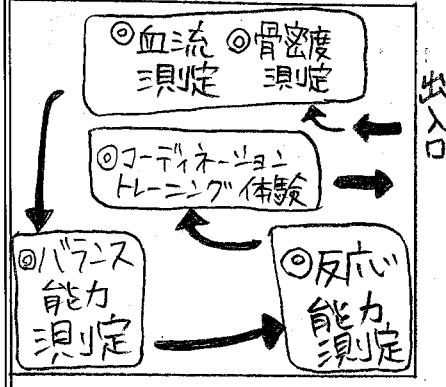 ◎血流 ◎骨密度
測定 測定
出入口
◎コーディネーション
トレーニング体験
◎バランス
能力
測定
◎反応
能力
測定